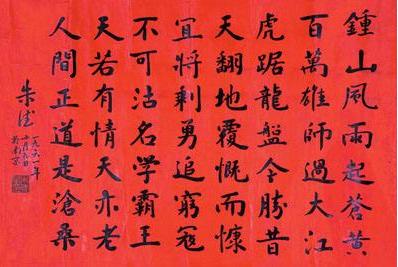 鍾山風雨起蒼黃
百萬雄師過大江
虎踞龍盤今勝昔
天翻地覆慨而慷
宜將剩勇追窮寇
不可沽名学霸王
天若有情天亦老
人間正道是滄桑
朱德
一九六一年
於南京